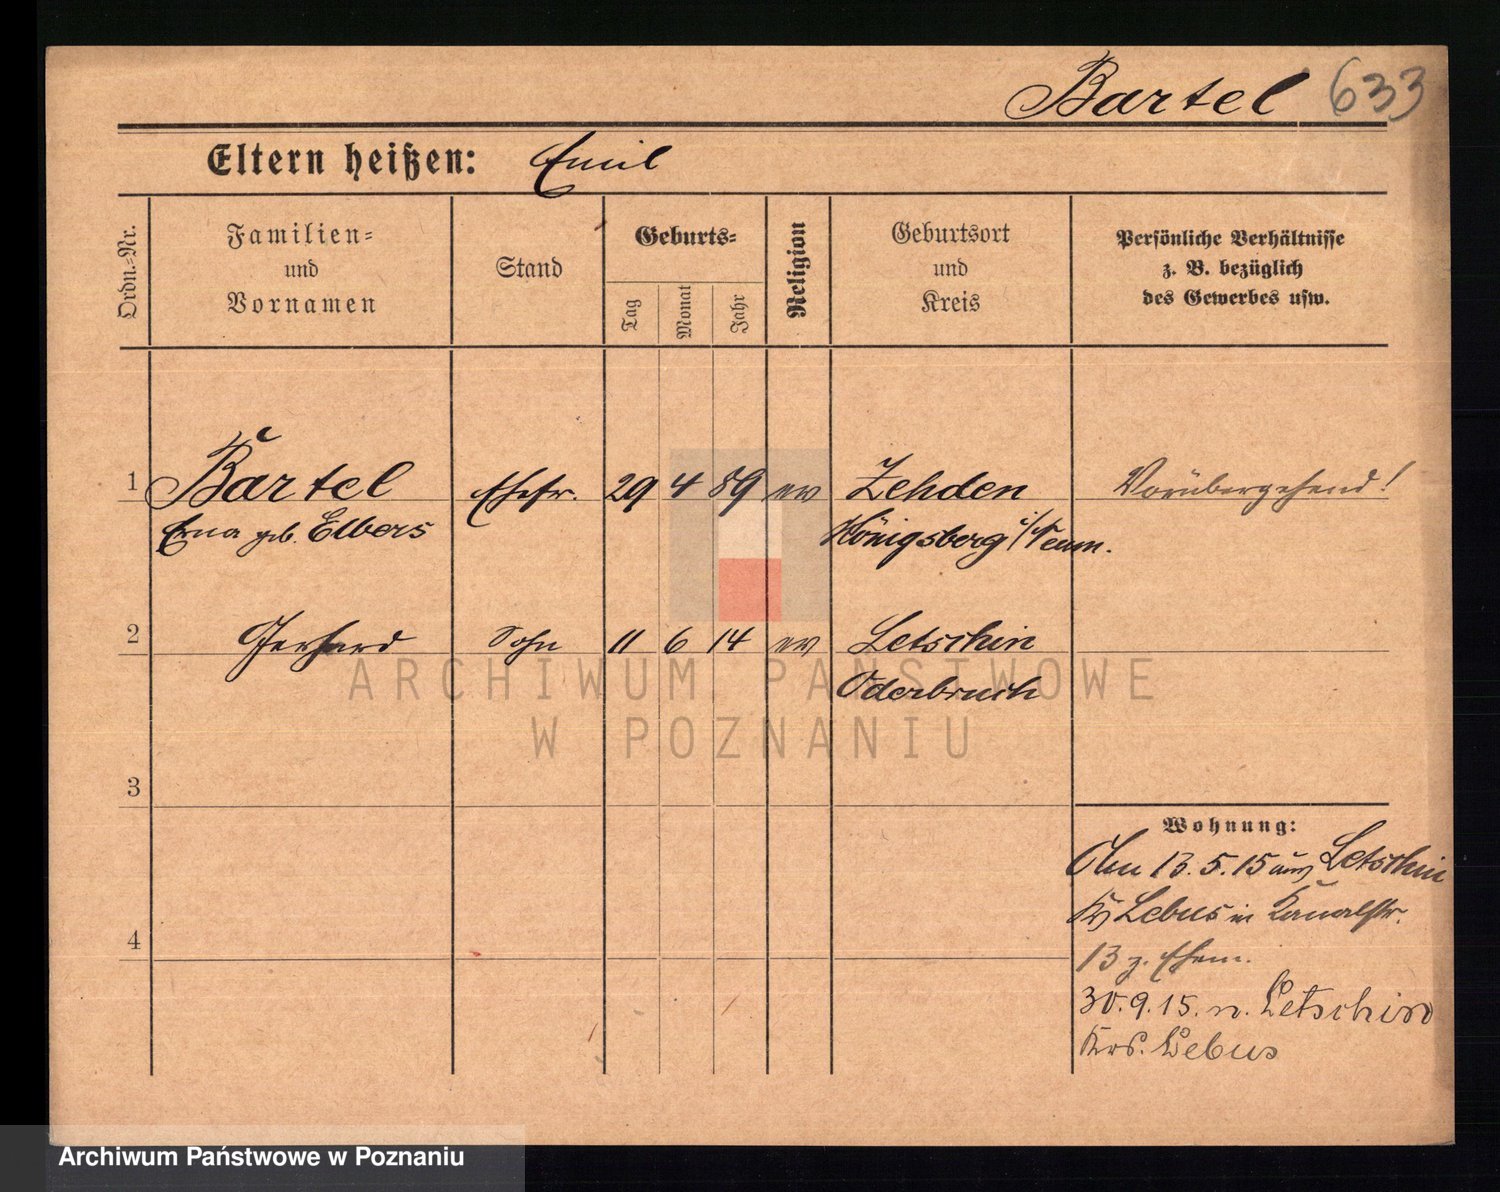 Bartel 633
Eltern heißen: Emil
Ordn.-Nr.
Familien-
und
Vornamen
Stand
Geburts-
Tag
Monat
Jahr
Religion
Geburtsort
und
Kreis
Persönliche Verhältnisse
z. B. bezüglich
des Gewerbes usw.
1 Bartel Ehefr. 29 4 89 ev Zehden Vorübergehend!
Erna geb. Elbers Königsberg i/Neum.
2 Gerhard Sohn 11 6 14 ev Letschin
Oderbruch
ARCHIWUM PAŃSTWOWE
W POZNANIU
3
Wohnung:
Am 13.5.15 aus Letschin
Kr Lebus in Kanalstr.
4
13 z. Ehem.
30.9.15. n. Letschin
Krs. Lebus
Archiwum Państwowe w Poznaniu